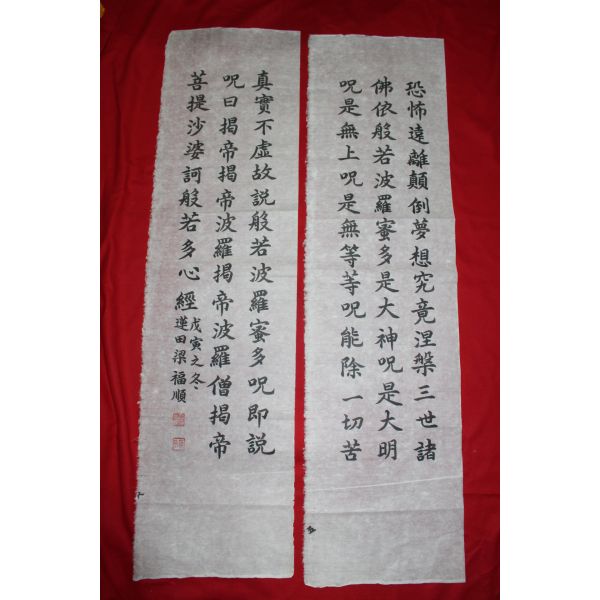 恐怖遠離顛倒夢想究竟涅槃三世諸
佛依般若波羅蜜多是大神呪是大明
呪是無上呪是無等等呪能除一切苦
五
真實不虛故說般若波羅蜜多呪即説
呪曰揭帝揭帝波羅揭帝波羅僧揭帝
菩提沙婆訶般若多心經
戊寅之冬
蓮田梁福順